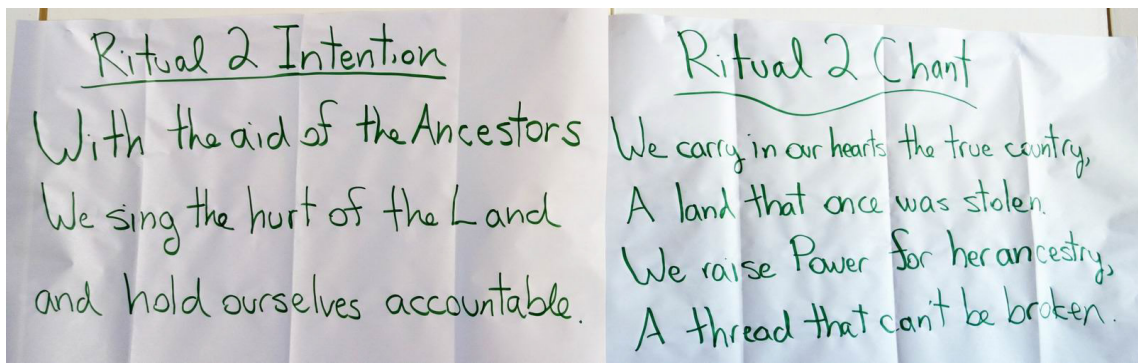 Ritual 2 Intention
With the aid of the Ancestors
We sing the hurt of the Land
and hold ourselves accountable.
Ritual 2 Chant
We carry in our hearts the true country,
A land that once was stolen.
We raise Power for her ancestry,
A thread that can't be broken.